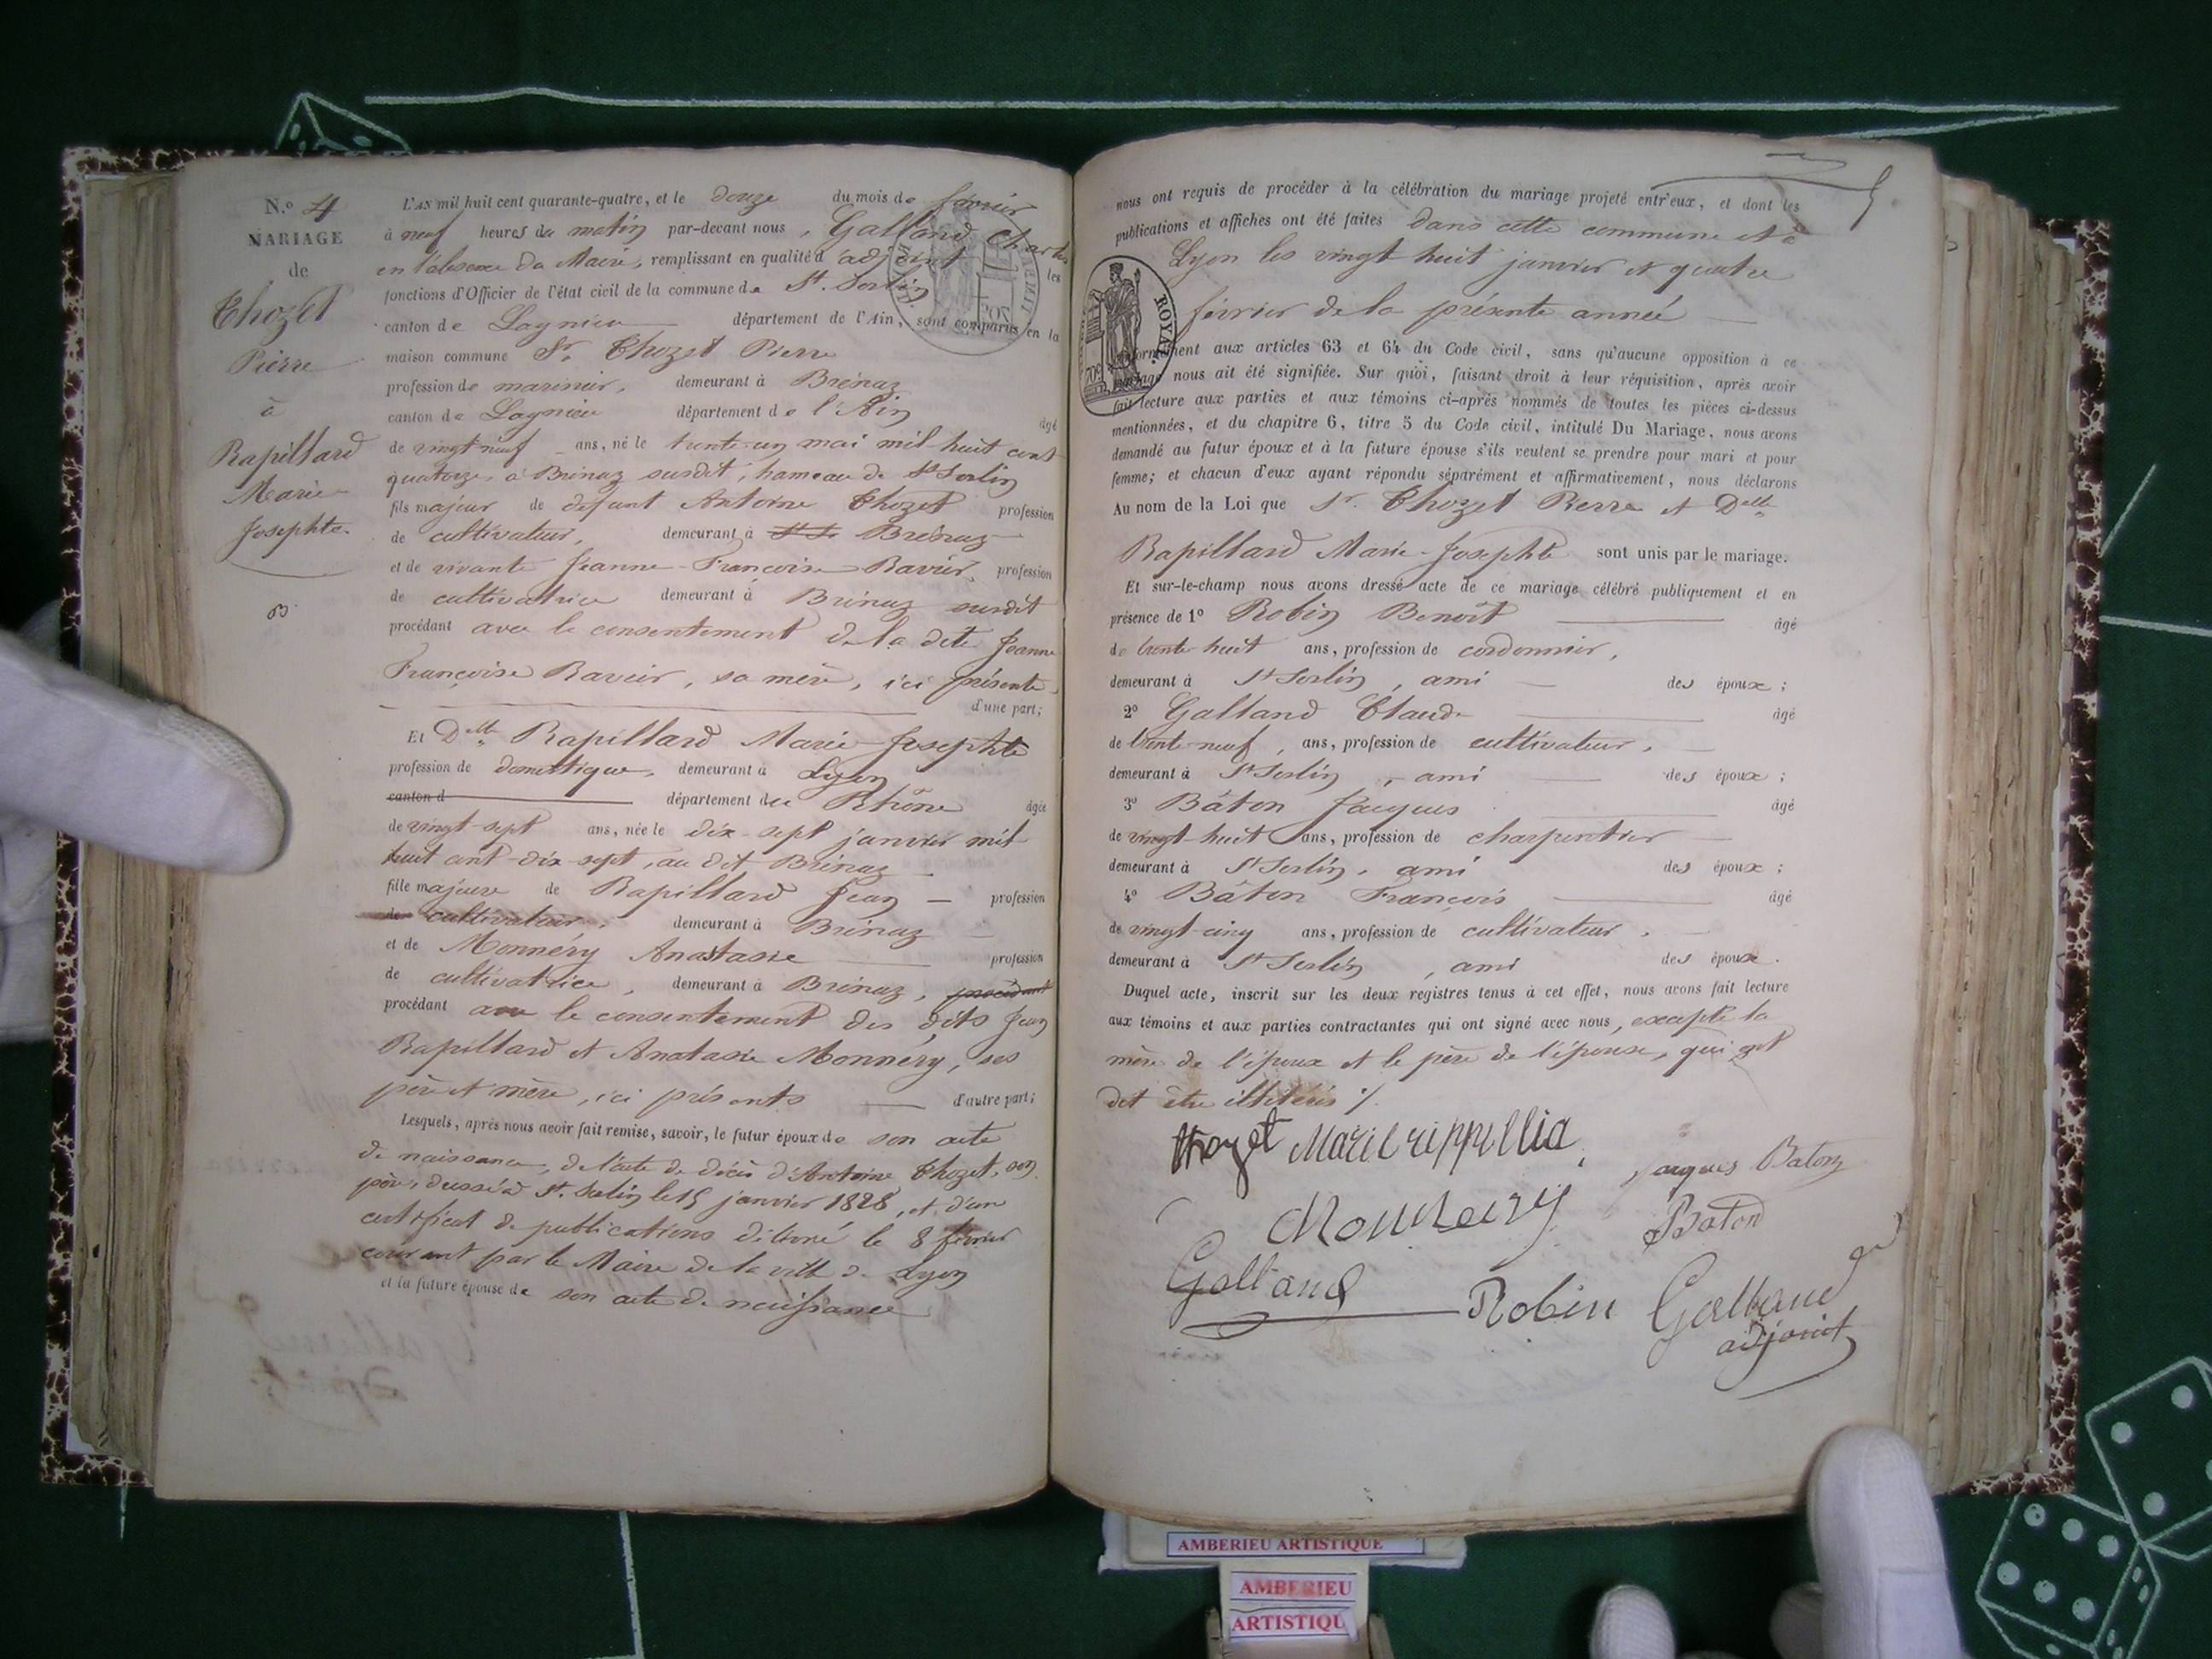 N.º 4
MARIAGE
de
Thozet
Pierre
à
Rapillard
Marie
Josephte
L'AN mil huit cent quarante-quatre, et le douze du mois de février
à neuf heures du matin par-devant nous, Galland Charles
en l'absence du Maire, remplissant en qualité d'adjoint les
fonctions d'Officier de l'état civil de la commune de St. Sorlin
canton de Lagnieu département de l'Ain, sont comparus en la
maison commune Sr. Thozet Pierre
profession de marinier, demeurant à Brénaz
canton de Lagnieu département de l'Ain âgé
de vingt neuf ans, né le trente-un mai mil-huit cent
quatorze, à Brénaz susdit, hameau de St Sorlin
fils majeur de défunt Antoine Thozet profession
de cultivateur, demeurant à Brénaz
et de vivante Jeanne-Françoise Ravier, profession
de cultivatrice demeurant à Brénaz susdit
procédant avec le consentement de la dite Jeanne
Françoise Ravier, sa mère, ici présente
d'une part;
Et Delle Rapillard Marie Josephte
profession de domestique, demeurant à Lyon
canton d département du Rhône âgée
de vingt-sept ans, née le dix-sept janvier mil
huit cent-dix-sept, au dit Brénaz
fille majeure de Rapillard Jean profession
de cultivateur, demeurant à Brénaz
et de Monnéry Anastasie profession
de cultivatrice, demeurant à Brénaz, procédant
procédant avec le consentement des dits Jean
Rapillard et Anatasie Monnéry, ses
père et mère, ici présents d'autre part;
Lesquels, après nous avoir fait remise, savoir, le futur époux de son acte
de naissance, de l'acte de décès d'Antoine Thozet, son
père, dressé à St. Sorlin le 15 janvier 1828, et d'un
certificat de publications délivré le 8 février
courant par le Maire de la ville de Lyon
et la future épouse de son acte de naissance
5
nous ont requis de procéder à la célébration du mariage projeté entr'eux, et dont les
publications et affiches ont été faites dans cette commune et à
Lyon les vingt huit janvier et quatre
février de la présente année
ROYAL
conformément aux articles 63 et 64 du Code civil, sans qu'aucune opposition à ce
mariage nous ait été signifiée. Sur quoi, faisant droit à leur réquisition, après avoir
fait lecture aux parties et aux témoins ci-après nommés de toutes les pièces ci-dessus
mentionnées, et du chapitre 6, titre 5 du Code civil, intitulé Du Mariage, nous avons
demandé au futur époux et à la future épouse s'ils veulent se prendre pour mari et pour
femme; et chacun d'eux ayant répondu séparément et affirmativement, nous déclarons
Au nom de la Loi que Sr. Thozet Pierre et Delle
Rapillard Marie-Josephte sont unis par le mariage.
Et sur-le-champ nous avons dressé acte de ce mariage célébré publiquement et en
présence de 1º Robin Benoît âgé
de trente huit ans, profession de cordonnier,
demeurant à St Sorlin, ami des époux;
2º Galland Claude âgé
de trente-neuf, ans, profession de cultivateur,
demeurant à St Sorlin, ami des époux;
3º Bâton Jacques âgé
de vingt-huit ans, profession de charpentier
demeurant à St Sorlin, ami des époux;
4º Bâton François âgé
de vingt-cinq ans, profession de cultivateur,
demeurant à St Sorlin, ami des époux.
Duquel acte, inscrit sur les deux registres tenus à cet effet, nous avons fait lecture
aux témoins et aux parties contractantes qui ont signé avec nous, excepté la
mère de l'époux et le père de l'épouse, qui ont
dit être illitérés
thozet Marie rippillia
jacques Baton
Monnery
Baton
Galland Robin Galland
adjoint
AMBERIEU ARTISTIQUE
AMBERIEU
ARTISTIQU